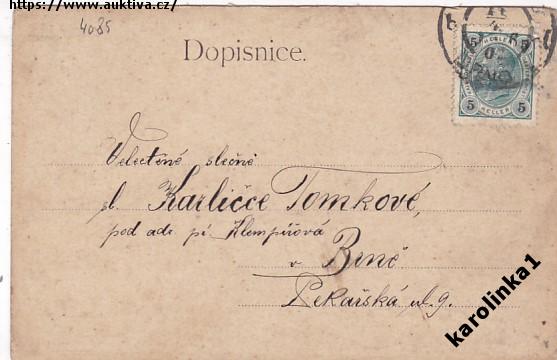 https://www.auktiva.cz/
4085
Dopisnice.
5 HELLER 5
5 HELLER 5
Velectěné slečně
sl. Karličce Tomkové,
pod adr. pí. Klempířová
v Brně
Pekařská ul. 9.
karolinka1